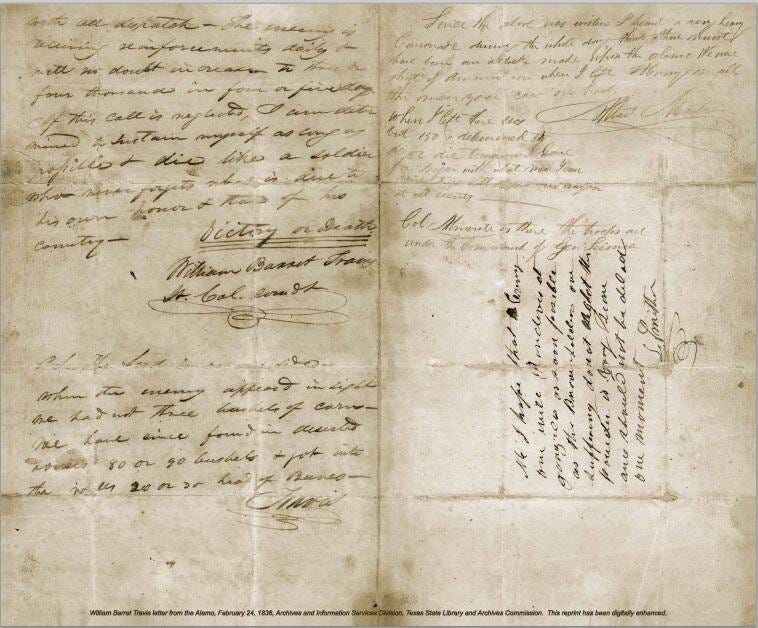 with all dispatch — The enemy is
receiving reinforcements daily &
will no doubt increase to three or
four thousand in four or five days.
If this call is neglected, I am deter
mined to sustain myself as long as
possible & die like a soldier
who never forgets what is due to
his own honor & that of his
country —
Victory or Death
William Barret Travis
Lt. Col. comdt
P.S. The Lord is on our side
When the enemy appeared in sight
we had not three bushels of corn —
we have since found in deserted
houses 80 or 90 bushels & got into
the walls 20 or 30 head of Beeves —
Travis
Since the above was written I heard a very heavy
Cannonade during the whole day think there must
have been an attack made upon the alamo We were
short of Ammunition when I left Hurry on all
the men you can
Albert Martin
When I left there was
but 150 determined to
do or die tomorrow I leave
for with what men I can
at all events
Col Almonte is there the troops are
under the Command of Gen
I hope that Every
one will Randives at
gonzales as soon poseble
as the Brave soldiers are
suffering do not neglect the
powder is very scarce
and should not be delad
one moment
L. Smither
William Barret Travis letter from the Alamo, February 24, 1836, Archives and Information Services Division, Texas State Library and Archives Commission. This reprint has been digitally enhanced.